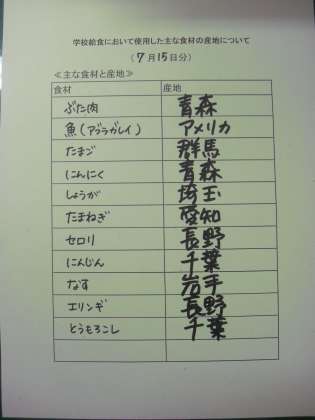 学校給食において使用した主な食材の産地について
(7月15日分)
≪主な食材と産地≫
食材 産地
ぶた肉 青森
魚(アブラガレイ) アメリカ
たまご 群馬
にんにく 青森
しょうが 埼玉
たまねぎ 愛知
セロリ 長野
にんじん 千葉
なす 岩手
エリンギ 長野
とうもろこし 千葉